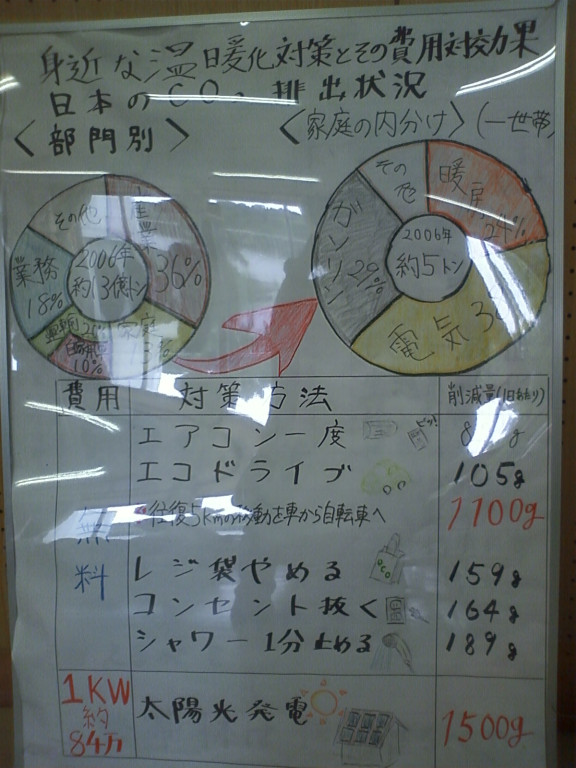 身近な温暖化対策とその費用対効果
日本のCO₂排出状況
〈部門別〉
〈家庭の内分け〉(一世帯)
その他
産業
36%
業務
18%
2006年
約13億トン
家庭
10%
その他
暖房
24%
ガソリン
29%
2006年
約5トン
電気3
費用 対策方法 削減量(1日あたり)
無料
エアコン一度 ピッ!
エコドライブ 105g
往復5kmの移動を車から自転車へ 1100g
レジ袋やめる 159g
eco
コンセント抜く 164g
シャワー1分止める 189g
1KW
約
84万
太陽光発電 1500g